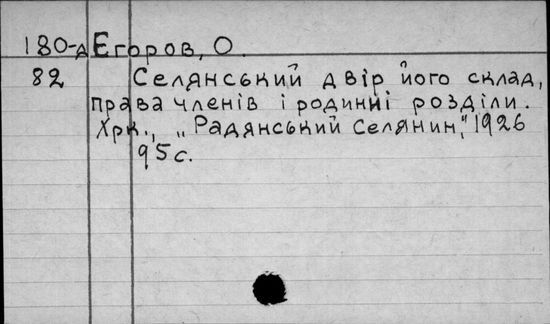 180-д Егоров, О.
82 Селянський двір його склад,
права членів і родинні розділи.
Хрк., „Радянський Селянин", 1926
95 с.